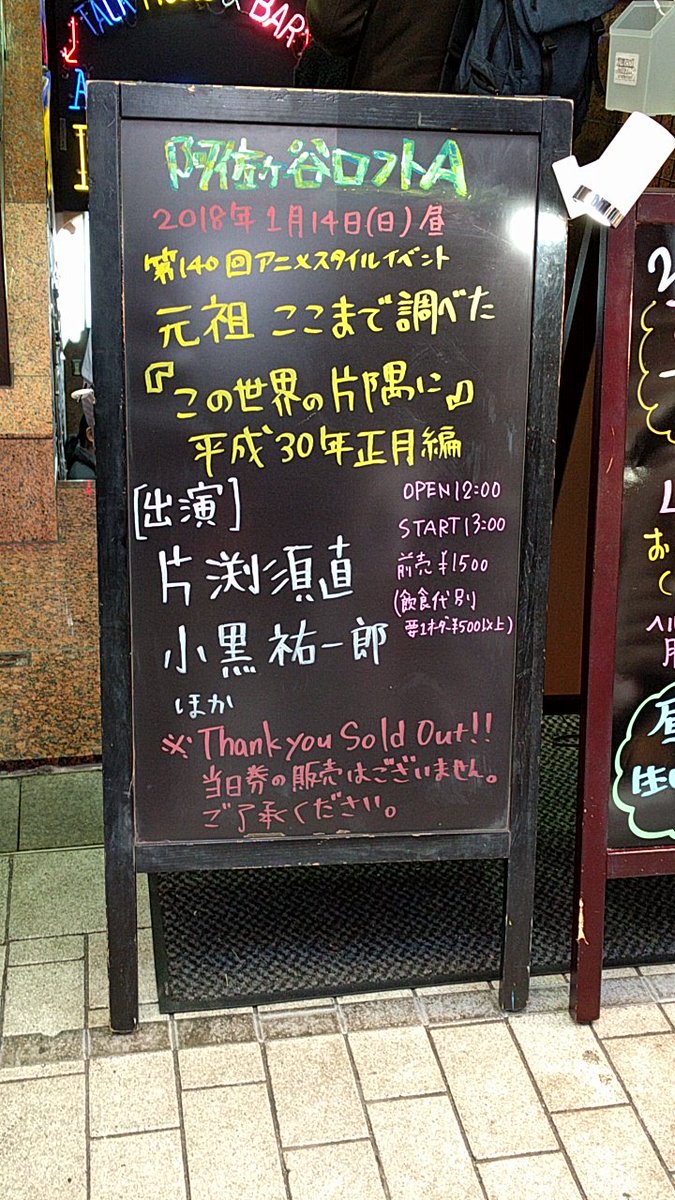 TALK & BAR
阿佐ヶ谷ロフトA
2018年1月14日(日)昼
第140回アニメスタイルイベント
元祖 ここまで調べた
『この世界の片隅に』
平成30年正月編
[出演]
片渕須直
小黒祐一郎
ほか
OPEN12:00
START13:00
前売¥1500
(飲食代別
要1オーダー¥500以上)
※Thank you Sold Out!!
当日券の販売はございません。
ご了承ください。